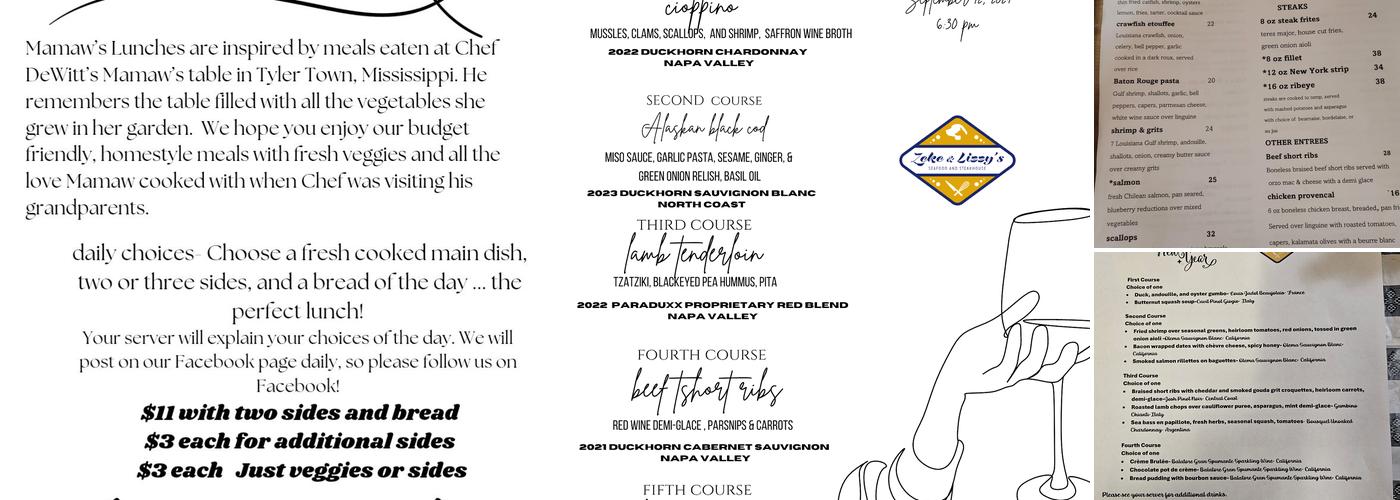 Mamaw's Lunches are inspired by meals eaten at Chef
DeWitt's Mamaw's table in Tyler Town, Mississippi. He
remembers the table filled with all the vegetables she
grew in her garden. We hope you enjoy our budget
friendly, homestyle meals with fresh veggies and all the
love Mamaw cooked with when Chef was visiting his
grandparents.
daily choices- Choose a fresh cooked main dish,
two or three sides, and a bread of the day ... the
perfect lunch!
Your server will explain your choices of the day. We will
post on our Facebook page daily, so please follow us on
Facebook!
$11 with two sides and bread
$3 each for additional sides
$3 each Just veggies or sides
cioppino
MUSSLES, CLAMS, SCALLOPS, AND SHRIMP, SAFFRON WINE BROTH
2022 DUCKHORN CHARDONNAY
NAPA VALLEY
SECOND COURSE
Alaskan black cod
MISO SAUCE, GARLIC PASTA, SESAME, GINGER, &
GREEN ONION RELISH, BASIL OIL
2023 DUCKHORN SAUVIGNON BLANC
NORTH COAST
THIRD COURSE
lamb tenderloin
TZATZIKI, BLACKEYED PEA HUMMUS, PITA
2022 PARADUXX PROPRIETARY RED BLEND
NAPA VALLEY
FOURTH COURSE
beef tshort ribs
RED WINE DEMI-GLACE , PARSNIPS & CARROTS
2021 DUCKHORN CABERNET SAUVIGNON
NAPA VALLEY
FIFTH COURSE
6:30 pm
Zeke & Lizzy's
SEAFOOD AND STEAKHOUSE
thin fried catfish, shrimp, oysters
lemon, fries, tarter, cocktail sauce
crawfish etouffee 22
Louisiana crawfish, onion,
celery, bell pepper, garlic
cooked in a dark roux, served
over rice
Baton Rouge pasta 20
Gulf shrimp, shallots, garlic, bell
peppers, capers, parmesan cheese,
white wine sauce over linguine
shrimp & grits 24
7 Louisiana Gulf shrimp, andouille,
shallots, onion, creamy butter sauce
over creamy grits
*salmon 25
fresh Chilean salmon, pan seared,
blueberry reductions over mixed
vegetables
scallops 32
STEAKS
8 oz steak frites 24
teres major, house cut fries,
green onion aioli
*8 oz fillet 38
*12 oz New York strip 34
*16 oz ribeye 38
steaks are cooked to temp, served
with mashed potatoes and asparagus
with choice of: bearnaise, bordelaise, or
au jus
OTHER ENTREES
Beef short ribs 28
Boneless braised beef short ribs served with
orzo mac & cheese with a demi glace
chicken provencal 16
6 oz boneless chicken breast, breaded, pan fri
Served over linguine with roasted tomatoes,
capers, kalamata olives with a beurre blanc
Year
First Course
Choice of one
Duck, andouille, and oyster gumbo- Louis Jadot Beaujolais- France
Butternut squash soup- Cavit Pinot Grigio- Italy
Second Course
Choice of one
Fried shrimp over seasonal greens, heirloom tomatoes, red onions, tossed in green
onion aioli -Olema Sauvignon Blanc- California
Bacon wrapped dates with chèvre cheese, spicy honey- Olema Sauvignon Blanc-
California
Smoked salmon rillettes on baguettes- Olema Sauvignon Blanc- California
Third Course
Choice of one
Braised short ribs with cheddar and smoked gouda grit croquettes, heirloom carrots,
demi-glace- Josh Pinot Noir- Central Coast
Roasted lamb chops over cauliflower puree, asparagus, mint demi-glace- Gambino
Chianti- Italy
Sea bass en papillote, fresh herbs, seasonal squash, tomatoes- Bousquet Unoaked
Chardonnay- Argentina
Fourth Course
Choice of one
Crème Brulée- Balatore Gran Spumante Sparkling Wine- California
Chocolate pot de crème- Balatore Gran Spumante Sparkling Wine- California
Bread pudding with bourbon sauce- Balatore Gran Spumante Sparkling Wine- California
Please see your server for additional drinks.